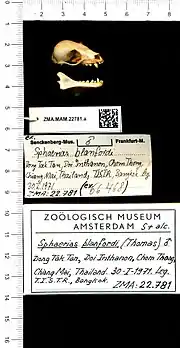 ZMA.MAM.22781.a
ex.
Senckenberg-Mus. ♂ Frankfurt-M.
Sphaerias blanfordi
Dong Tak Tan, Doi Inthanon, Chom Thong,
Chiang Mai, Thailand, TISTR, Bangkok leg.
30-I-1971 (ex
ZMA: 22.781
ZOÖLOGISCH MUSEUM
AMSTERDAM S+alc.
Sphaerias blanfordi, (Thomas) ♂
Dong Tak Tan, Doi Inthanon, Chom Thong,
Chiang Mai, Thailand. 30-I-1971. leg.
T.I.S.T.R., Bangkok.
ZMA: 22.781